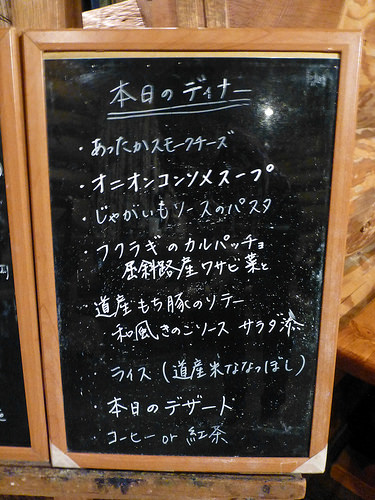 本日のディナー
・あったかスモークチーズ
・オニオンコンソメスープ
・じゃがいもソースのパスタ
・フクラギのカルパッチョ
屈斜路産ワサビ菜と
・道産もち豚のソテー
和風きのこソース サラダ添
・ライス(道産米ななつぼし)
・本日のデザート
・コーヒー or 紅茶